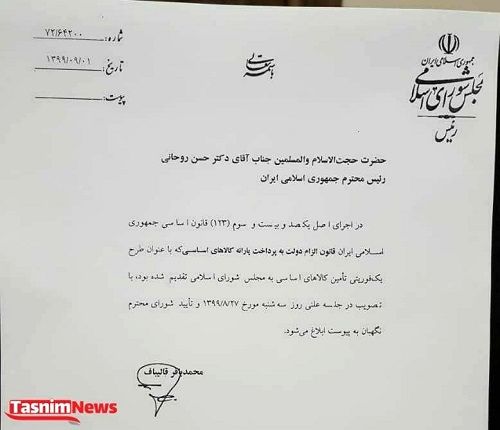 جمهوری اسلامی ایران
مجلس شورای اسلامی
رئیس
باسمه تعالی
شماره: ۷۲/۶۴۲۰۰
تاریخ: ۱۳۹۹/۰۹/۰۱
پیوست:
حضرت حجت‌الاسلام والمسلمین جناب آقای دکتر حسن روحانی
رئیس محترم جمهوری اسلامی ایران
در اجرای اصل یکصد و بیست و سوم (۱۲۳) قانون اساسی جمهوری
اسلامی ایران قانون الزام دولت به پرداخت یارانه کالاهای اساسی که با عنوان طرح
یک‌فوریتی تأمین کالاهای اساسی به مجلس شورای اسلامی تقدیم شده بود، با
تصویب در جلسه علنی روز سه شنبه مورخ ۱۳۹۹/۸/۲۷ و تأیید شورای محترم
نگهبان به پیوست ابلاغ می‌شود.
محمدباقر قالیباف
TasnimNews